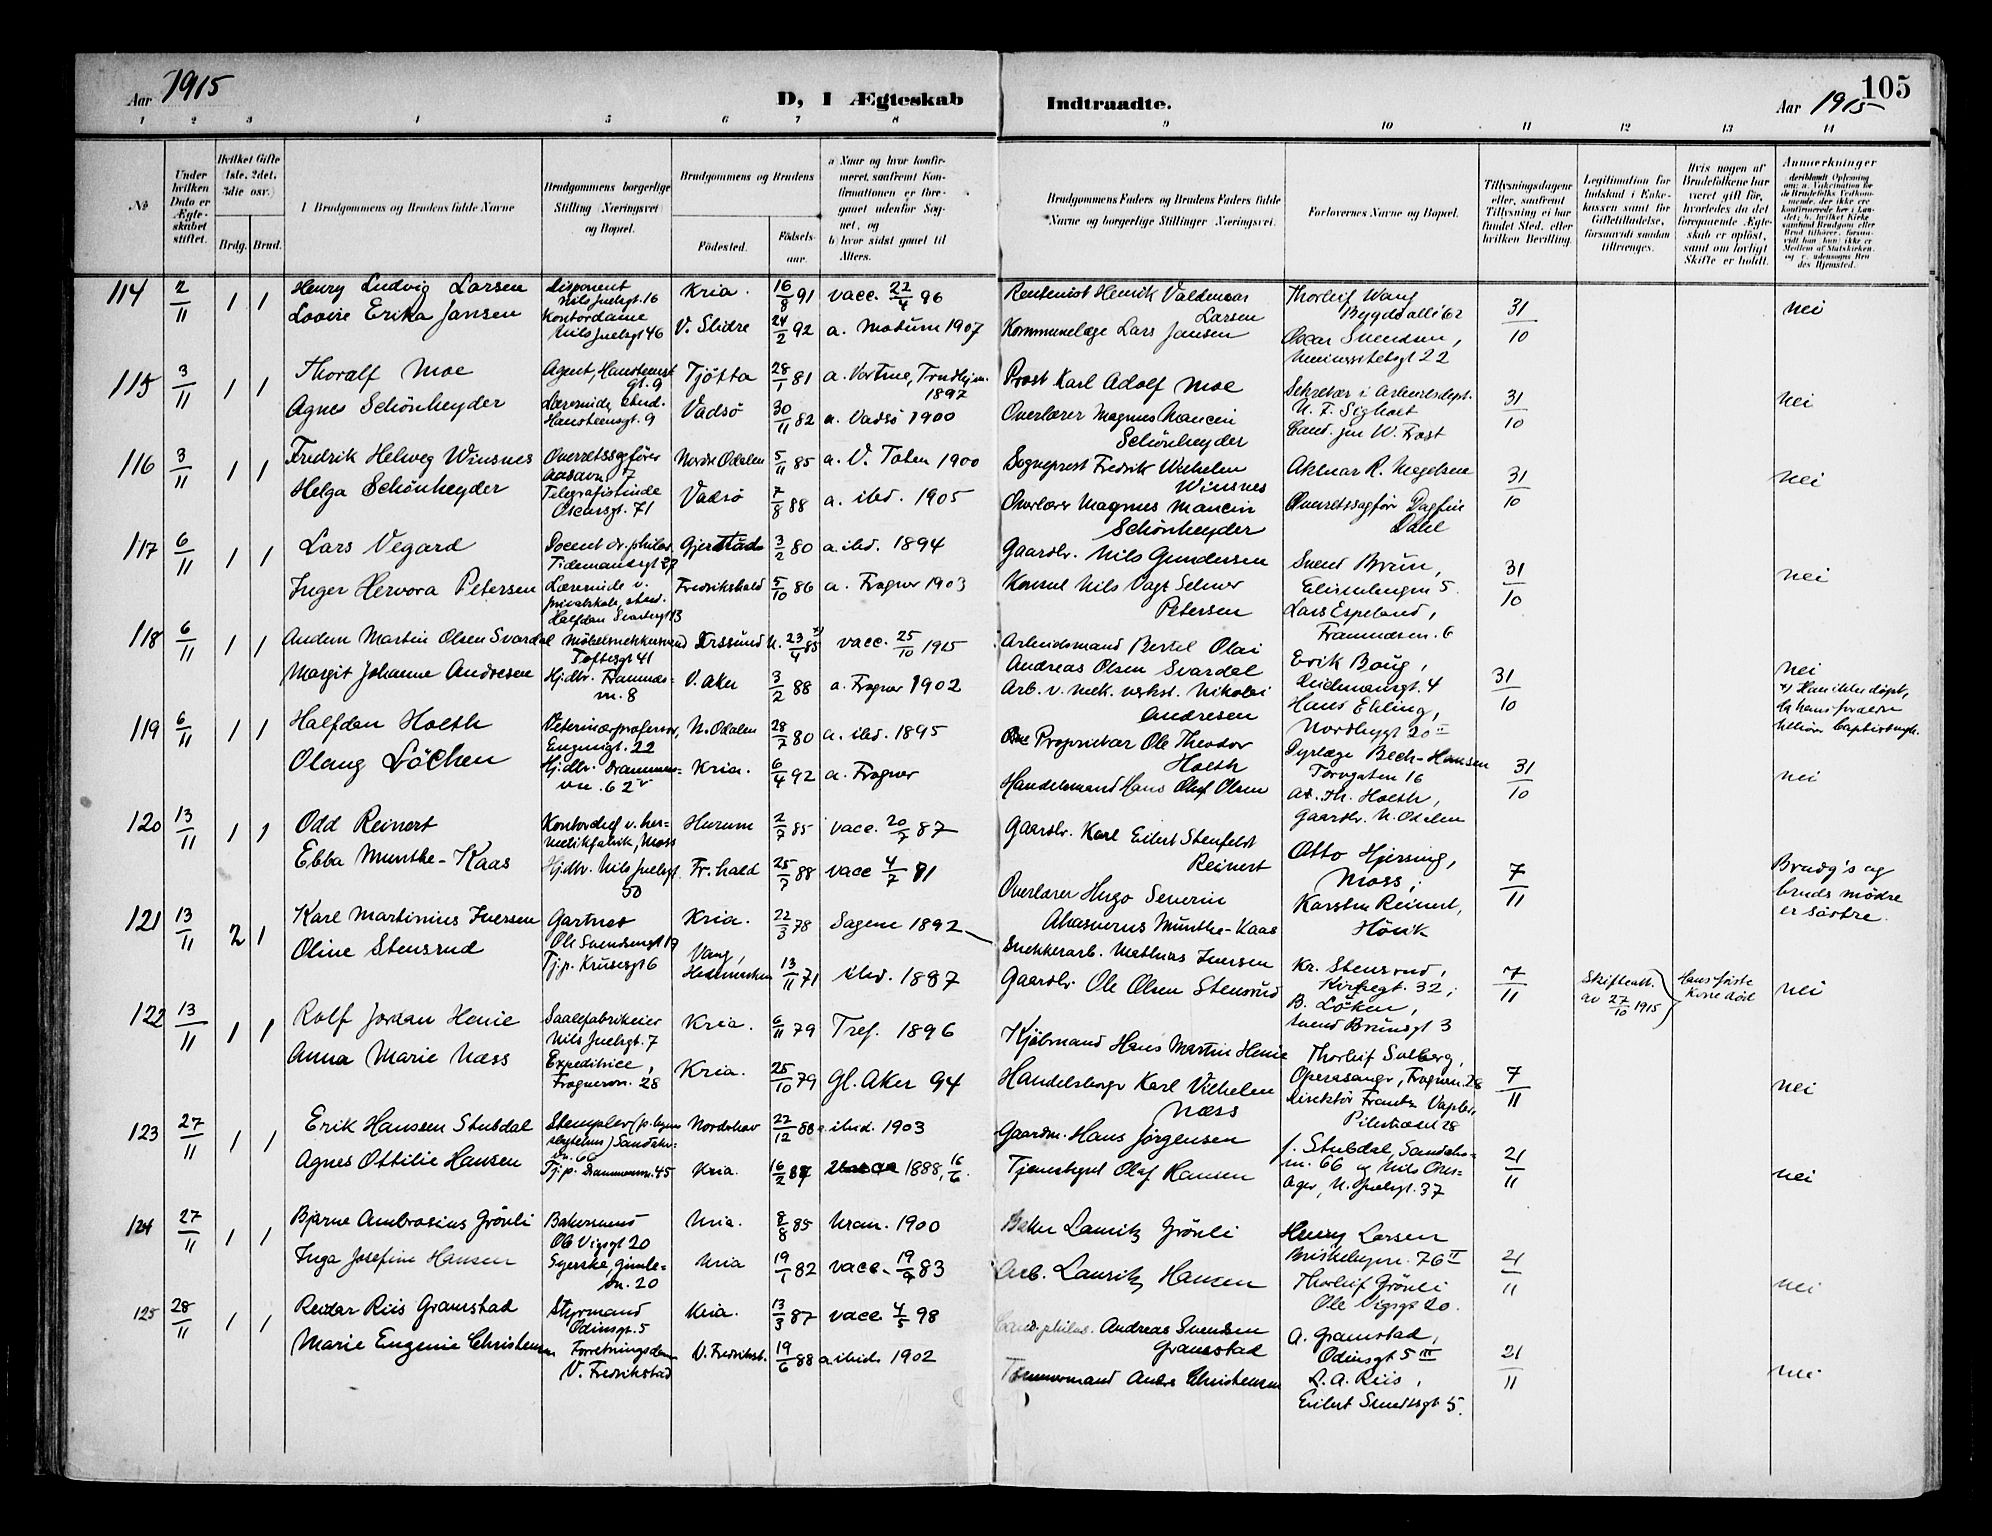 Aar 1915
D, I Ægteskab Indtraadte.
Aar 1915
105
1 2 3 4 5 6 7 8 9 10 11 12 13 14
No
Under hvilken Dato er Ægteskabet stiftet.
Hvilket Gifte (1ste, 2det, 3die osv.)
Brdg. Brud.
Brudgommens og Brudens fulde Navne
Brudgommens borgerlige Stilling (Næringsvei) og Bopæl.
Brudgommens og Brudens
Födested.
Födselsaar.
a) Naar og hvor konfirmeret, samt om Konfirmationen er foregaaet udenfor Sognet, og
b) hvor sidst gaaet til Alters.
Brudgommens Faders og Brudens Faders fulde Navne og borgerlige Stillinger Næringsvei.
Forlovernes Navne og Bopæl.
Tillysningsdagene eller, saafremt Tillysning ei har fundet Sted, efter hvilken Bevilling.
Legitimation for Indskud i Enkekassen samt for Giftetilladelse, forsaavidt saadan tiltrænges.
Hvis nogen af Brudefolkene har været gift för, hvorledes da det foregaaende Ægteskab er oplöst, samt om lovligt Skifte er holdt.
Anmærkninger
114 2/11 1 1 Henry Ludvig Larsen Disponent Nils Juelsgt. 16 Kria. 16/8 91 vacc. 22/4 96 Rentenist Henrik Valdemar Larsen Thorleif Wang Bygdø allé 62 31/10 nei
Lovise Erika Jansen Kontordame Nils Juelsgt 46 V. Slidre 24/2 92 a. Modum 1907 Kommunelæge Lars Jansen Oscar Svendsen, Universitetsgt 22
115 3/11 1 1 Thoralf Moe Agent, Hansteensgt. 9 Tjøtta 28/1 81 a. Vor Frue, Trndhjm. 1897 Prost Karl Adolf Moe Sekretær i Arbeidsdept. N. F. Sigholt 31/10 nei
Agnes Schönheyder Lærerinde, Hansteensgt. 9 Vadsö 30/11 82 a. Vadsö 1900 Overlærer Magnus Mancin Schönheyder Cand. jur W. Frost
116 3/11 1 1 Fredrik Helweg Winsnes Overretssagfører Nordre Odalen 5/11 85 a. V. Toten 1900 Sogneprest Fredrik Wilhelm Winsnes Aktuar R. Megelsen 31/10 nei
Helga Schönheyder Telegrafistinde Oscarsgt. 71 Vadsö 7/8 88 a. ibd. 1905 Overlærer Magnus Mancin Schönheyder Overretssagfører Dagfin Dahl
117 6/11 1 1 Lars Vegard Docent dr. philos. Tidemandsgt 27 Gjerstad 3/2 80 a. ibd. 1894 Gaardbr. Nils Gundersen Svend Brun, 31/10 nei
Inger Hervora Petersen Lærerinde v. privatskole, Halfdan Svartesgt 13 Fredrikshald 5/10 86 a. Frogner 1903 Konsul Nils Vagt Selmer Petersen Lars Espeland, Framnesvn. 6
118 6/11 1 1 Martin Olsen Svardal Møbelsnekkersvend Toftesgt 41 23/4 85 vacc. 25/10 1915 Arbeidsmand Bertel Olai Andreas Olsen Svardal Erik Boug, 31/10 nei
Margit Johanne Andresen Hj. dtr. Framnesvn. 8 V. Aker 3/2 88 a. Frogner 1902 Arb. v. mek. verkst. Nikolai Andresen Hans Ehling, Nordbygt 20 II x) Han ikke døpt, da hans forældre
119 6/11 1 1 Halfdan Holth Veterinærprofessor, Eugeniegt. 22 N. Odalen 28/7 80 a. ibd. 1895 Proprietær Ole Theodor Holth Dyrlæge Bech-Hansen Torvgaten 16 31/10 nei
Olaug Löchen Hj. dtr. Drammensvn. 62 Kria. 6/4 92 a. Frogner Handelsmand Hans Oluf Olsen Th. Holth, Gaardbr. N. Odalen
120 13/11 1 1 Odd Reinert Kontorchef v. hermetikfabrik, Moss Hurum 2/7 85 vacc. 20/7 87 Gaardbr. Karl Eilert Stenfeldt Reinert Otto Hjersing, Moss; 7/11 Brudg's og bruds mødre er søstre.
Ebba Munthe-Kaas Hj. dtr. Nils Juelsgt 50 Fr. hald 25/7 88 vacc 4/7 91 Overlærer Hugo Severin Ahasverus Munthe-Kaas Karsten Reinert, Hövik
121 13/11 2 1 Karl Martinius Iversen Gartner Ole Svendsensgt 19 Kria. 22/3 78 Sagene 1892 Snekkerarb. Mathias Iversen Kr. Stensrud, Kirkegt. 32; 7/11 Skifteatt. av 27/10 1915 Hans første Kone død nei
Oline Stensrud Tj. p. Krusesgt 6 Vang, Hedemarken 13/11 71 ibd. 1887 Gaardbr. Ole Olsen Stensrud B. Löken, Svend Brunsgt 3
122 13/11 1 1 Rolf Jordan Henie Saalefabrikeier Nils Juelsgt. 7 Kria. 6/11 79 Tref. 1896 Kjøbmand Hans Martin Henie Thorleif Solberg, Operasanger, Frognervn. 28 7/11 nei
Anna Marie Næss Expeditrice, Frognervn. 28 Kria. 25/10 79 Gl. Aker 94 Handelsborger Karl Vilhelm Næss Direktør Frantz Vapler, Pilestrædet 28
123 27/11 1 1 Erik Hanssen Stubdal Stempler Sandakervn. 66 Norderhov 22/12 88 a. ibid. 1903 Gaardm. Hans Jørgensen J. Stubdal, Sandakervn. 66 21/11 nei
Agnes Ottilie Hansen Tj. p. Drammensvn. 45 Kria. 16/2 87 1888, 16/6 Tjenstegut Olaf Hansen N. Juelsgt. 37
124 27/11 1 1 Bjarne Ambrosius Grönli Bakersvend Ole Vigsgt 20 Kria. 8/8 85 Uran. 1900 Baker Lauritz Grönli Henry Larsen Briskebyvn. 76 II 21/11 nei
Inga Josefine Hansen Syerske, Gimlevn. 20 Kria 19/1 82 vacc. 19/9 83 Arb. Lauritz Hansen Thorleif Grönli Ole Vigsgt 20.
125 28/11 1 1 Reidar Riis Gramstad Styrmand Odinsgt. 5 Kria. 13/3 87 vacc. 4/5 98 Cand. philos. Andreas Svendsen Gramstad A. Gramstad, Odinsgt 5 III 21/11 nei
Marie Eugenie Christensen Forretningsdame V. Fredrikstad V. Fredrikst. 19/6 88 a. ibid. 1902 Tømmermand Andrs Christensen D. A. Riis, Eilert Sundtsgt 5.